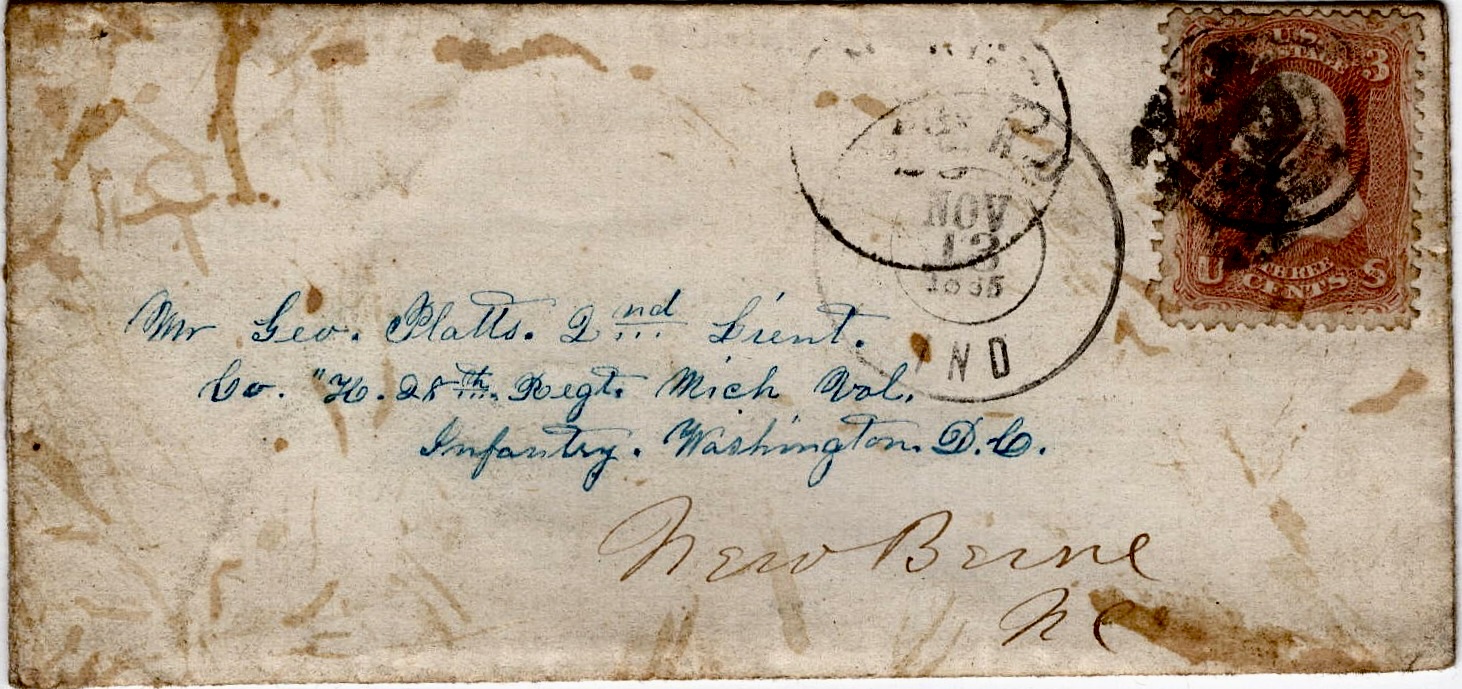 U.S. POSTAGE 3
NOV
13
1865
IND
U THREE S
CENTS
Mr Geo. Platts. 2nd Lieut.
Co. "H. 28th. Regt. Mich Vol.
Infantry. Washington. D.C.
New Berne
NC